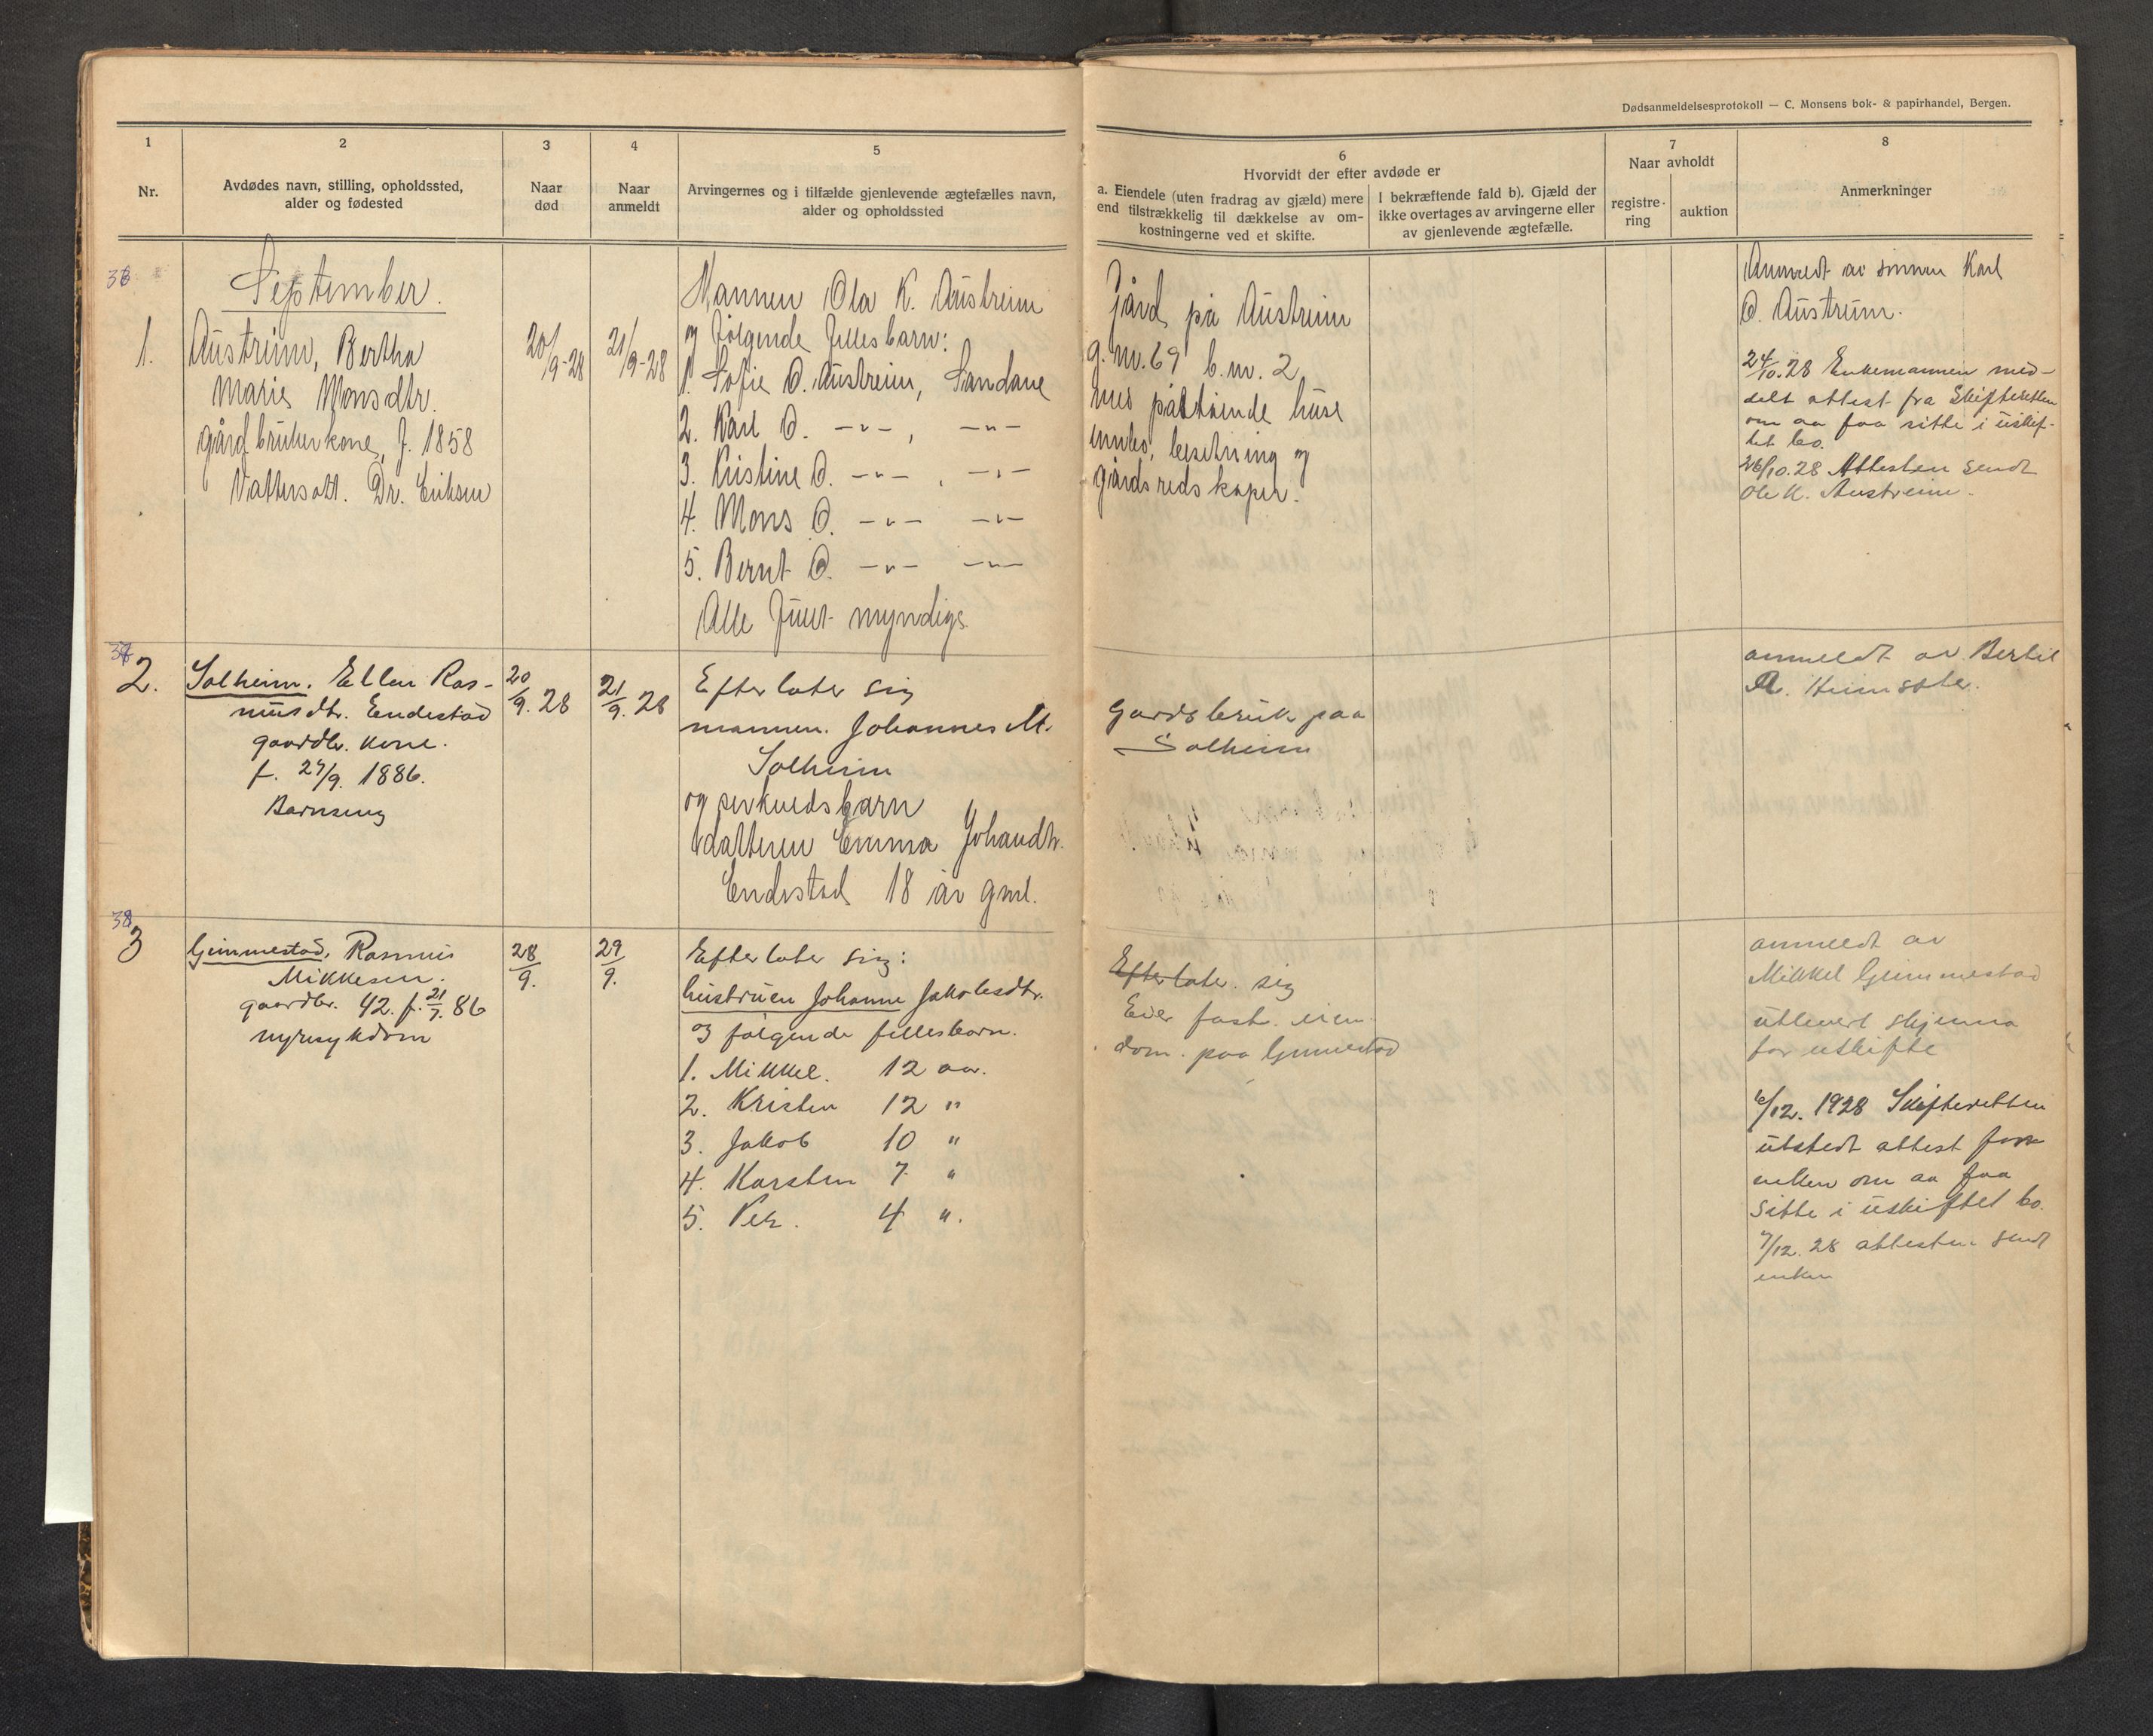 Dødsanmeldelsesprotokoll — C. Monsens bok- & papirhandel, Bergen.
1
2
3
4
5
Nr.
Avdødes navn, stilling, opholdssted,
alder og fødested
Naar
død
Naar
anmeldt
Arvingernes og i tilfælde gjenlevende ægtefælles navn,
alder og opholdssted
6
Hvorvidt der efter avdøde er
a. Eiendele (uten fradrag av gjæld) mere
end tilstrækkelig til dækkelse av om-
kostningerne ved et skifte.
I bekræftende fald b). Gjæld der
ikke overtages av arvingerne eller
av gjenlevende ægtefælle.
7
Naar avholdt
registre-
ring
auktion
8
Anmerkninger
36
September.
1.
Austreim, Bertha
Marie Monsdtr.
gårdbrukerkone, f. 1858
Vattersott. Dr. Eriksen
20/9-28
21/9-28
Mannen Ola K. Austreim
og følgende fellesbarn:
1. Sofie O. Austreim, Sandane
2. Karl O. -"-, -"-
3. Kristine O. -"-, -"-
4. Mons O. -"- -"-
5. Bernt O. -"- -"-
Alle fullt myndige
Gård på Austreim
g.nr. 69 b.nr. 2
med påstående huse
innbo, besetning og
gårdsredskaper.
Anmeldt av sønnen Karl
O. Austreim.
24/10.28 Enkemannen med-
delt attest fra Skifteretten
om aa faa sitte i uskif-
tet bo.
26/10.28 Attesten sendt
Ole K. Austreim.
37
2.
Solheim. Ellen Ras-
musdtr. Endestad
gaardbr. kone.
f. 27/9. 1886.
Barnseng
20/9. 28
21/9. 28
Efterlater sig
mannen. Johannes M.
Solheim
og særkuldsbarn
datteren Emma Johandtr.
Endestad 18 år gml.
Gardsbruk paa
Solheim
anmeldt av Bertil
R. Heimsæter.
38
3
Gimmestad, Rasmus
Mikkelsen.
gaardbr. 42. f. 21/7. 86
nyresykdom
28/9.
29/9.
Efterlater sig:
hustruen Johanne Jakobsdtr.
og følgende fellesbarn.
1. Mikkel. 12 aar.
2. Kristen 12 "
3. Jakob 10 "
4. Karsten 7 "
5. Per. 4 ".
Efterlater sig
Eier fast. eien-
dom. paa Gimmestad
anmeldt av
Mikkel Gimmestad
utlevert skjema
for uskifte
6/12. 1928 Skifteretten
utstedt attest for
enken om aa faa
sitte i uskiftet bo.
7/12. 28 attesten sendt
enken